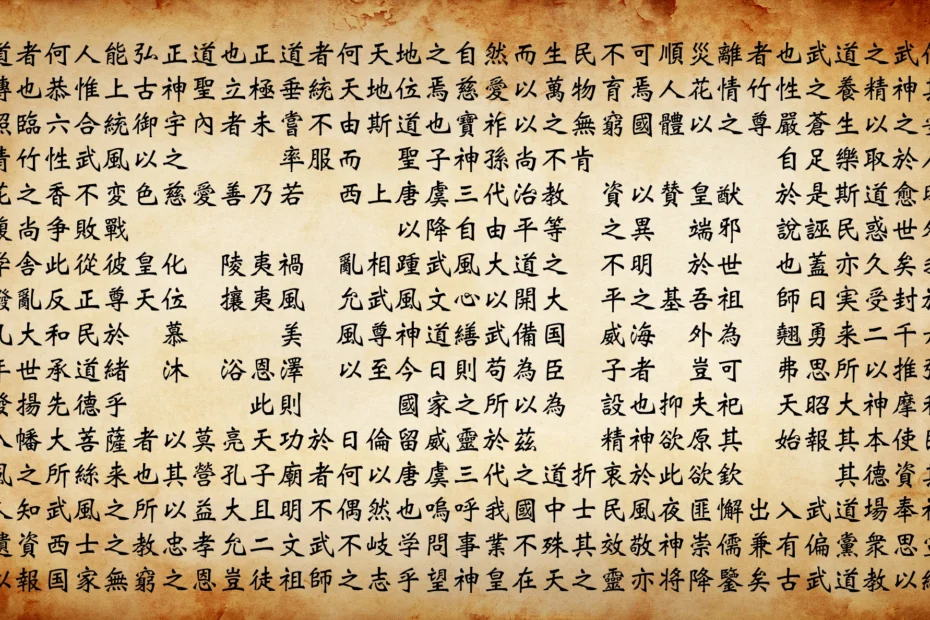 道者何人能弘正道也正道者何天地之自然而生民不可順災離者也武道之武
也恭惟上古神聖立極垂統天地位焉慈愛以萬物育焉人花情竹性之養精神
照臨六合統御宇內者未嘗不由斯道也寶祚以之無窮國體以之尊嚴蒼生以之
情竹性武風以之 率服而 聖子神孫尚不肯 自足樂取於
花之香不变色慈愛善乃若 西上唐虞三代治教 資以賛皇猷 於是斯道愈
尚争敗戰 以降自由平等 之異 端邪 說誣民惑世
舎此從彼皇化 陵夷禍 亂相踵武風大道之 不明 於世 也蓋亦久矣
亂反正尊天位 攘夷風 允武風文心以開大 平之基吾祖 師日実受封
大和民於 慕 美 風尊神道繕武備国 威海 外為 翹勇来二千
世承道緒 沐 浴恩澤 以至今日則苟為臣 子者 豈可 弗思所以推
發揚先德乎 此則 國家之所以為 設也抑夫祀 天昭大神摩
幡大菩薩者以莫亮天功於日倫留威靈於茲 精神欲原其 始報其本使
風之所絲来也其營孔子廟者何以唐虞三代之道折衷於此欲欽 其德資
知武風之所以益大且明不偶然也嗚呼我國中士民風夜匪懈出入武道場奉
資西士之教忠孝允二文武不岐学問事業不殊其效敬神崇儒兼有偏黨衆思
報国家無窮之恩豈徒祖師之志乎望神皇在天之靈亦将降鑒矣古武道教以